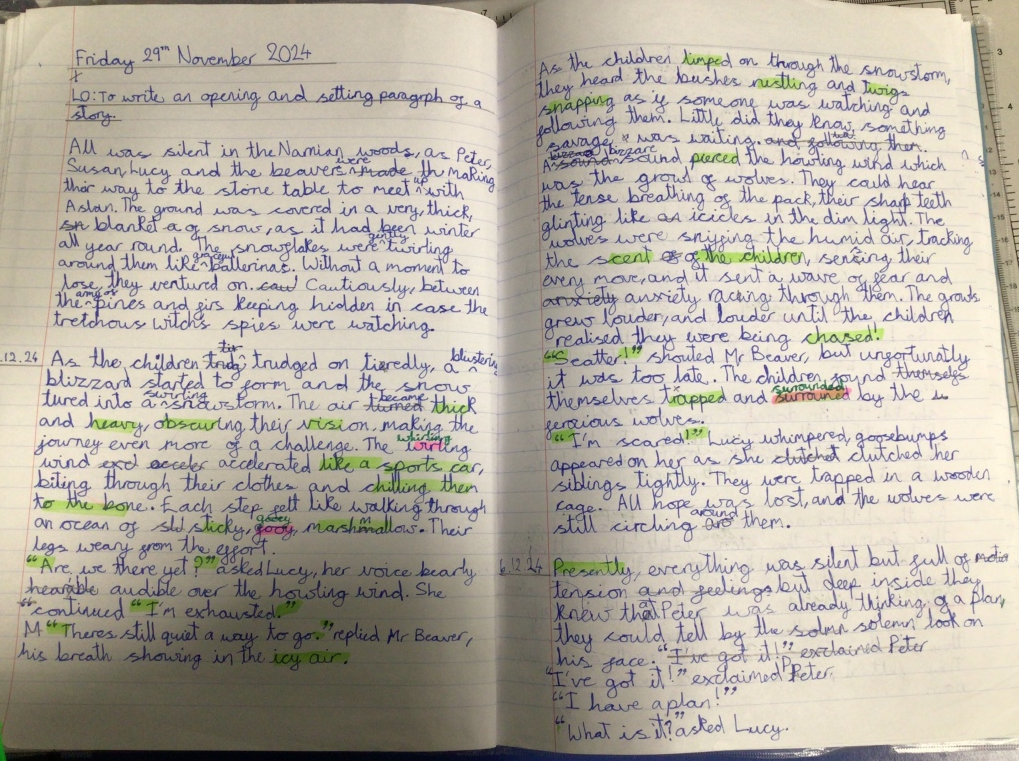 Friday 29th November 2024
LO: To write an opening and setting paragrph of a
story.
All was silent in the Narnian woods, as Peter,
Susan, Lucy and the beavers were made th making
thier way to the stone table to meet up with
Aslan. The ground was covered in a very, thick,
sn blanket a of snow, as it had been winter
all year round. The snowflakes were gently twirling
around them like graceful ballerinas. Without a moment to
lose, they ventured on. cau Cautiously, between
the army of pines and firs keeping hidden in case the
tretchous witch's spies were watching.
.12.24
As the children trug tir trudged on tieredly, a blustering
blizzard started to form and the snow
tured into a swirling snowstorm. The air turned became thick
and heavy, obscuring their vision, making the
journey even more of a challenge. The wirling whirling
wind exc acceler accelerated like a sports car,
biting through their clothes and chilling them
to the bone. Each step felt like walking through
an ocean of sld sticky, gooy, gooey marshmallow. Their
legs weary from the effort.
"Are, we there yet?" asked Lucy, her voice bearly
hearable audible over the howling wind. She
"continued "I'm exhausted."
M "Theres still quiet a way to go." replied Mr Beaver,
his breath showing in the icy air.
As the children limped on through the snowstorm,
they heard the bushes rustling and twigs
snapping as if someone was watching and
following them. Little did they know, something
savage was waiting. and following them.
A sound bizzare sound pierced the howling wind which
was the growl of wolves. They could hear
the tense breathing of the pack, their sharp teeth
glinting like an icicles in the dim light. The
wolves were sniffing the humid air, tracking
the scent of of the children, sensing their
every move, and it sent a wave of fear and
anxiety anxiety racing through them. The growls
grew louder, and louder until the children
realised they were being chased!
"Scatter!" shouted Mr Beaver, but unfortunatly
it was too late. The children found themselfs
themselves trapped and surrouned surrounded by the
ferocious wolves.
"I'm scared!" Lucy whimpered, goosebumps
appeared on her as she clutchet clutched her
siblings tightly. They were trapped in a wooden
cage. All hope was lost, and the wolves were
still circling aro around them.
6.12.24
Presently, everything was silent but full of
tension and feelings but deep inside they
knew that Peter was already thinking, of a plan,
they could tell by the solmn solemn look on
his face. "I've got it!" exclaimed Peter
"I've got it!" exclaimed Peter.
"I have a plan!"
"What is it?" asked Lucy.